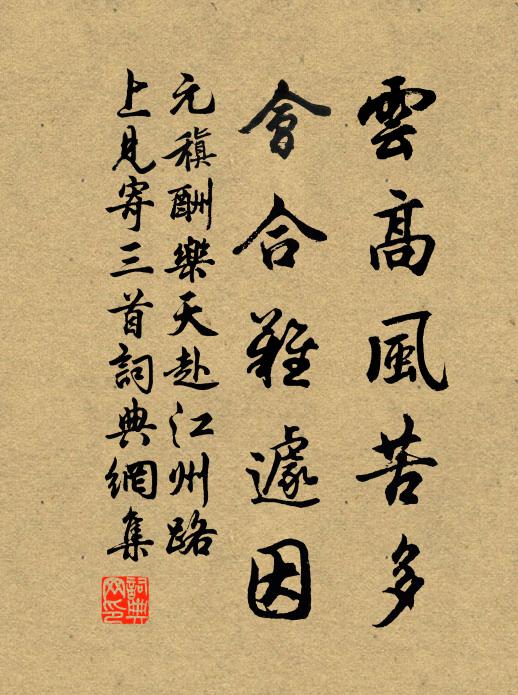 雲高風苦多
會合難遽因
元稹酬樂天赴江州路
上見寄三首詞典網集
詞典
网印